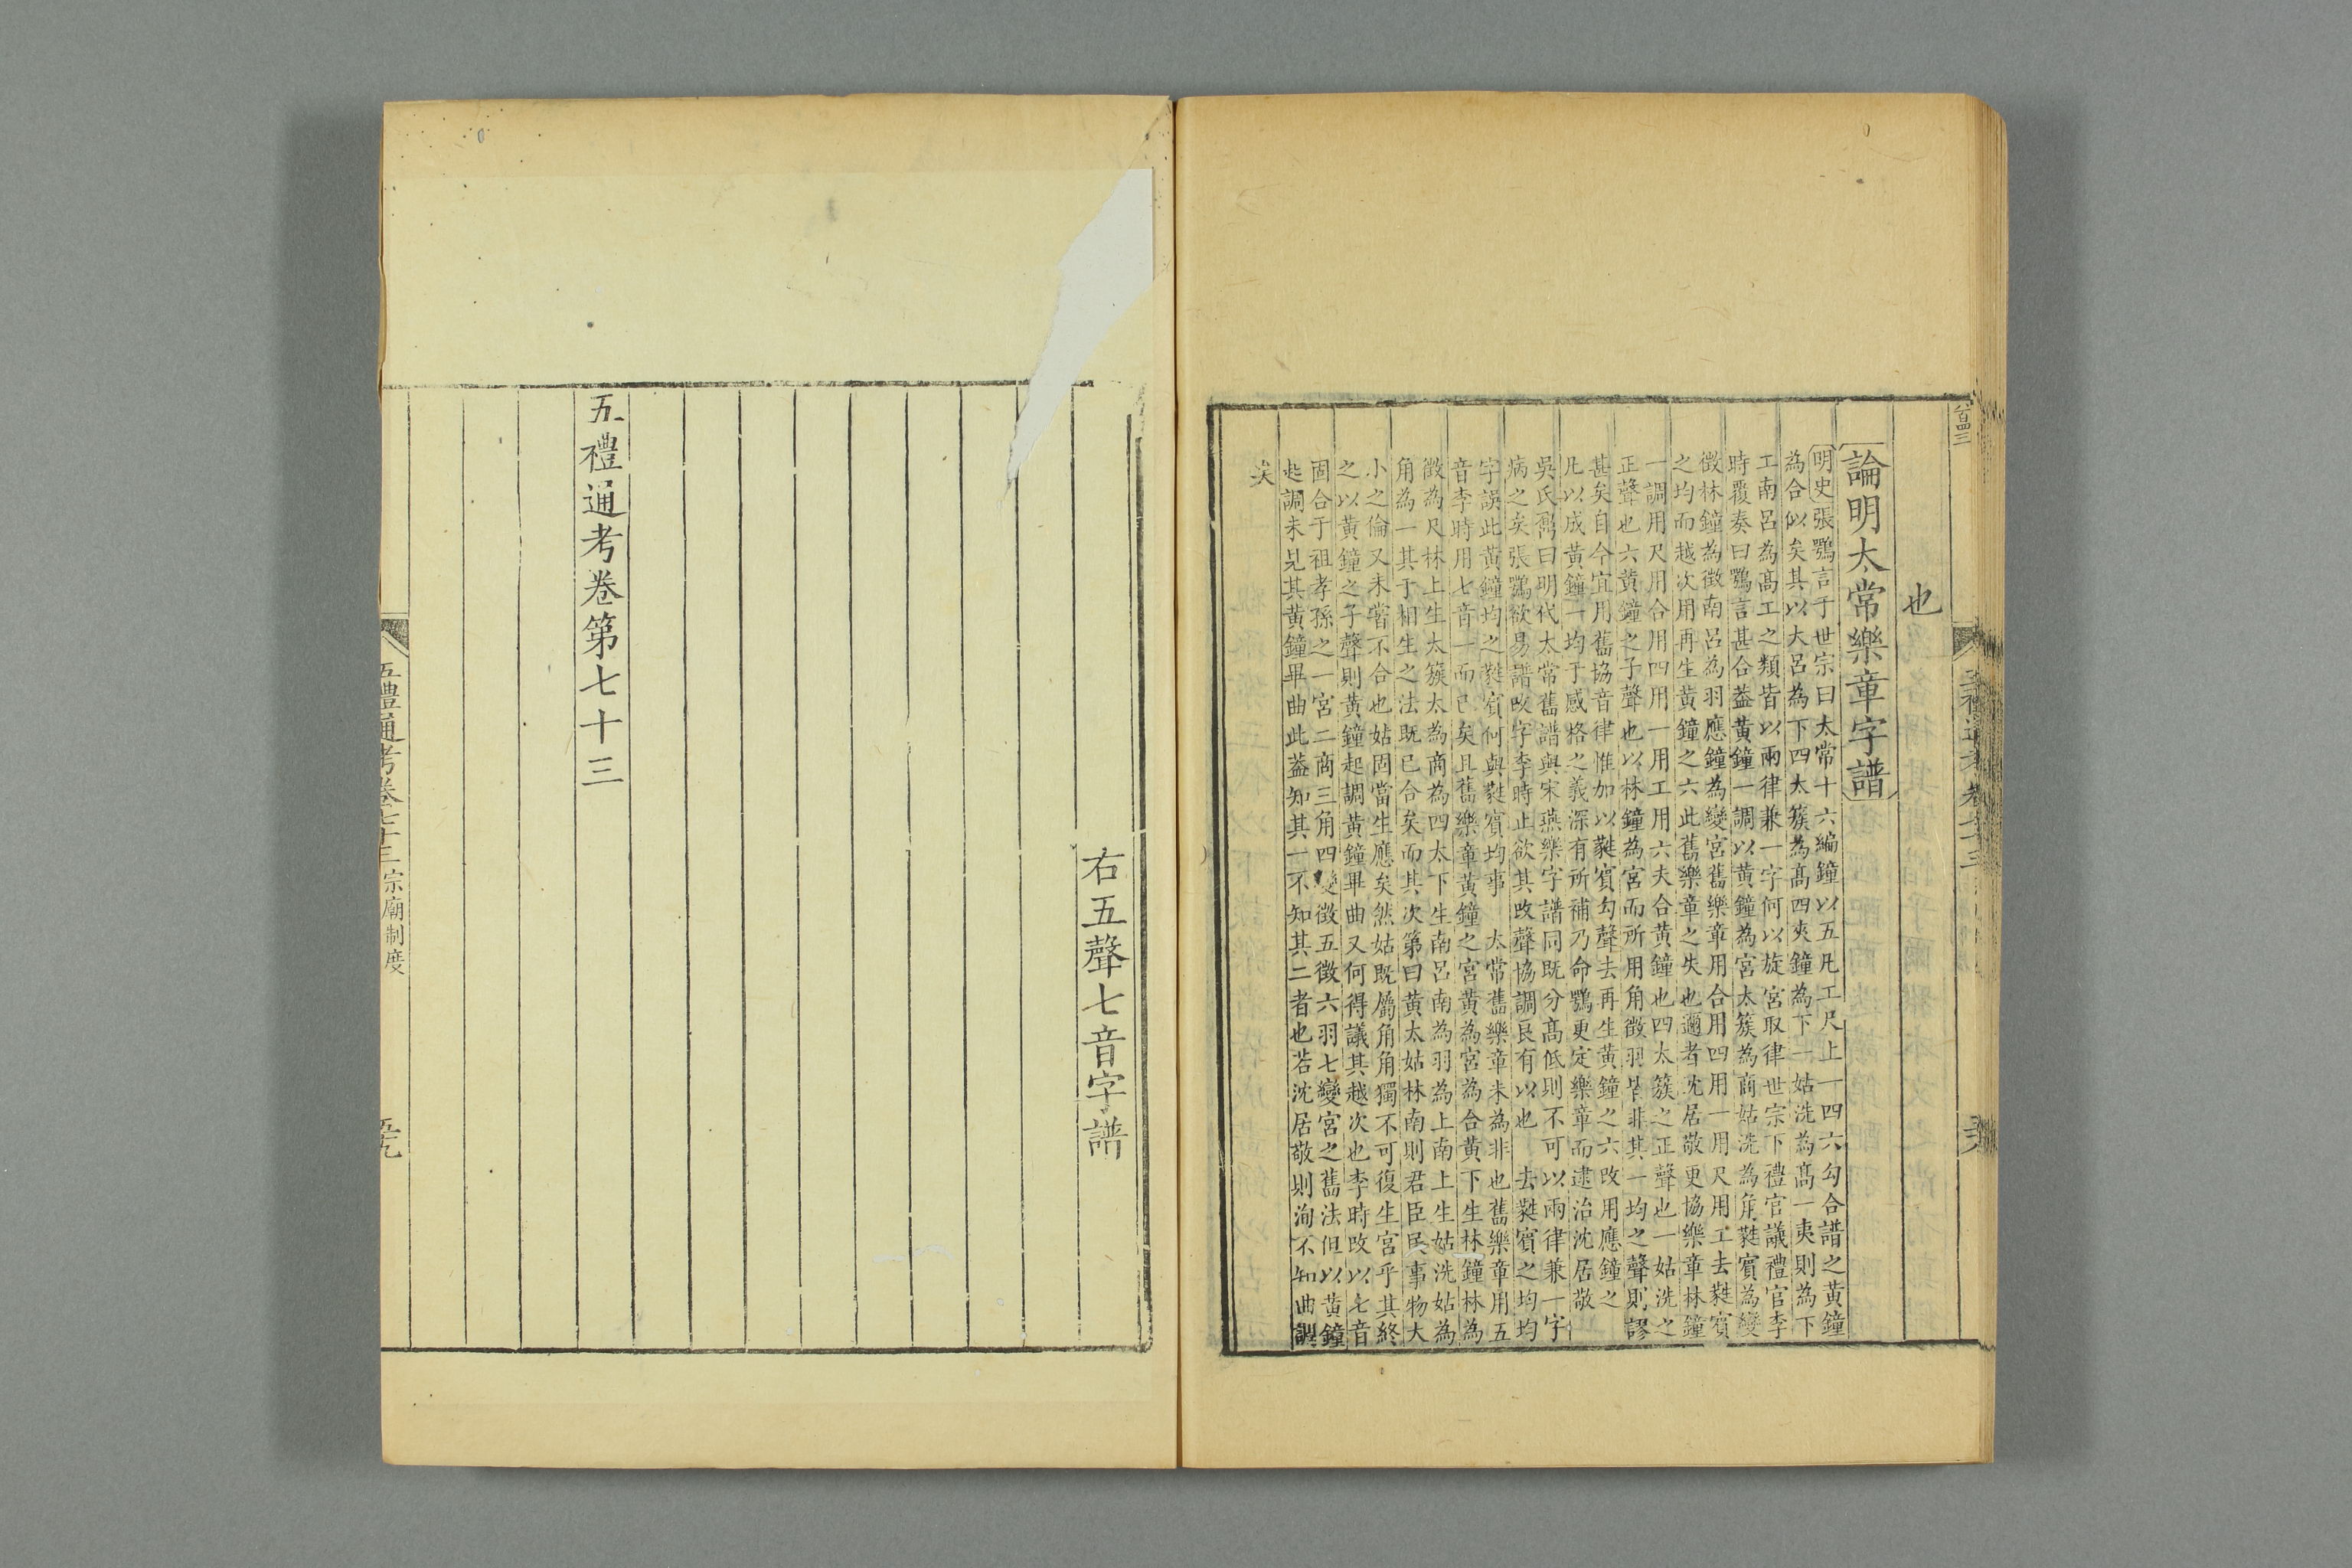 也
論明太常樂章字譜
明史張鶚言于世宗曰太常十六編鐘以五凡工尺上一四六勾合譜之黃鐘
為合似矣其以大呂為下四太簇為高四夾鐘為下一姑洗為高一夷則為下
工南呂為高工之類皆以兩律兼一字何以旋宮取律世宗下禮官議禮官李
時覆奏曰鶚言甚合葢黃鐘一調以黃鐘為宮太簇為商姑洗為角蕤賓為變
徵林鐘為徵南呂為羽應鐘為變宮舊樂章用合用四用一用尺用工去蕤賓
之均而越次用再生黃鐘之六此舊樂章之失也邇者沈居敬更協樂章林鐘
一調用尺用合用四用一用工用六夫合黃鐘也四太簇之正聲也一姑洗之
正聲也六黃鐘之子聲也以林鐘為宮而所用角徵羽皆非其一均之聲則謬
甚矣自今宜用舊協音律惟加以蕤賓勾聲去再生黃鐘之六改用應鐘之
凡以成黃鐘一均于感格之義深有所補乃命鶚更定樂章而逮治沈居敬
吳氏鼐曰明代太常舊譜與宋燕樂字譜同既分高低則不可以兩律兼一字
病之矣張鶚欲易譜改字李時止欲其改聲協調良有以也　去蕤賓之均均
字誤此黃鐘均之蕤賓何與蕤賓均事　太常舊樂章未為非也舊樂章用五
音李時用七音一而已矣且舊樂章黃鐘之宮黃為宮為合黃下生林鐘林為
徵為尺林上生太簇太為商為四太下生南呂南為羽為上南上生姑洗姑為
角為一其于相生之法既已合矣而其次第曰黃太姑林南則君臣民事物大
小之倫又未嘗不合也姑固當生應矣然姑既屬角角獨不可復生宮乎其終
之以黃鐘之子聲則黃鐘起調黃鐘畢曲又何得議其越次也李時改以七音
固合于祖孝孫之一宮二商三角四變徵五徵六羽七變宮之舊法但以黃鐘
起調未見其黃鐘畢曲此葢知其一不知其二者也若沈居敬則洵不知曲調
矣
右五聲七音字譜
五禮通考卷第七十三
五禮通考卷七十三 宗廟制度